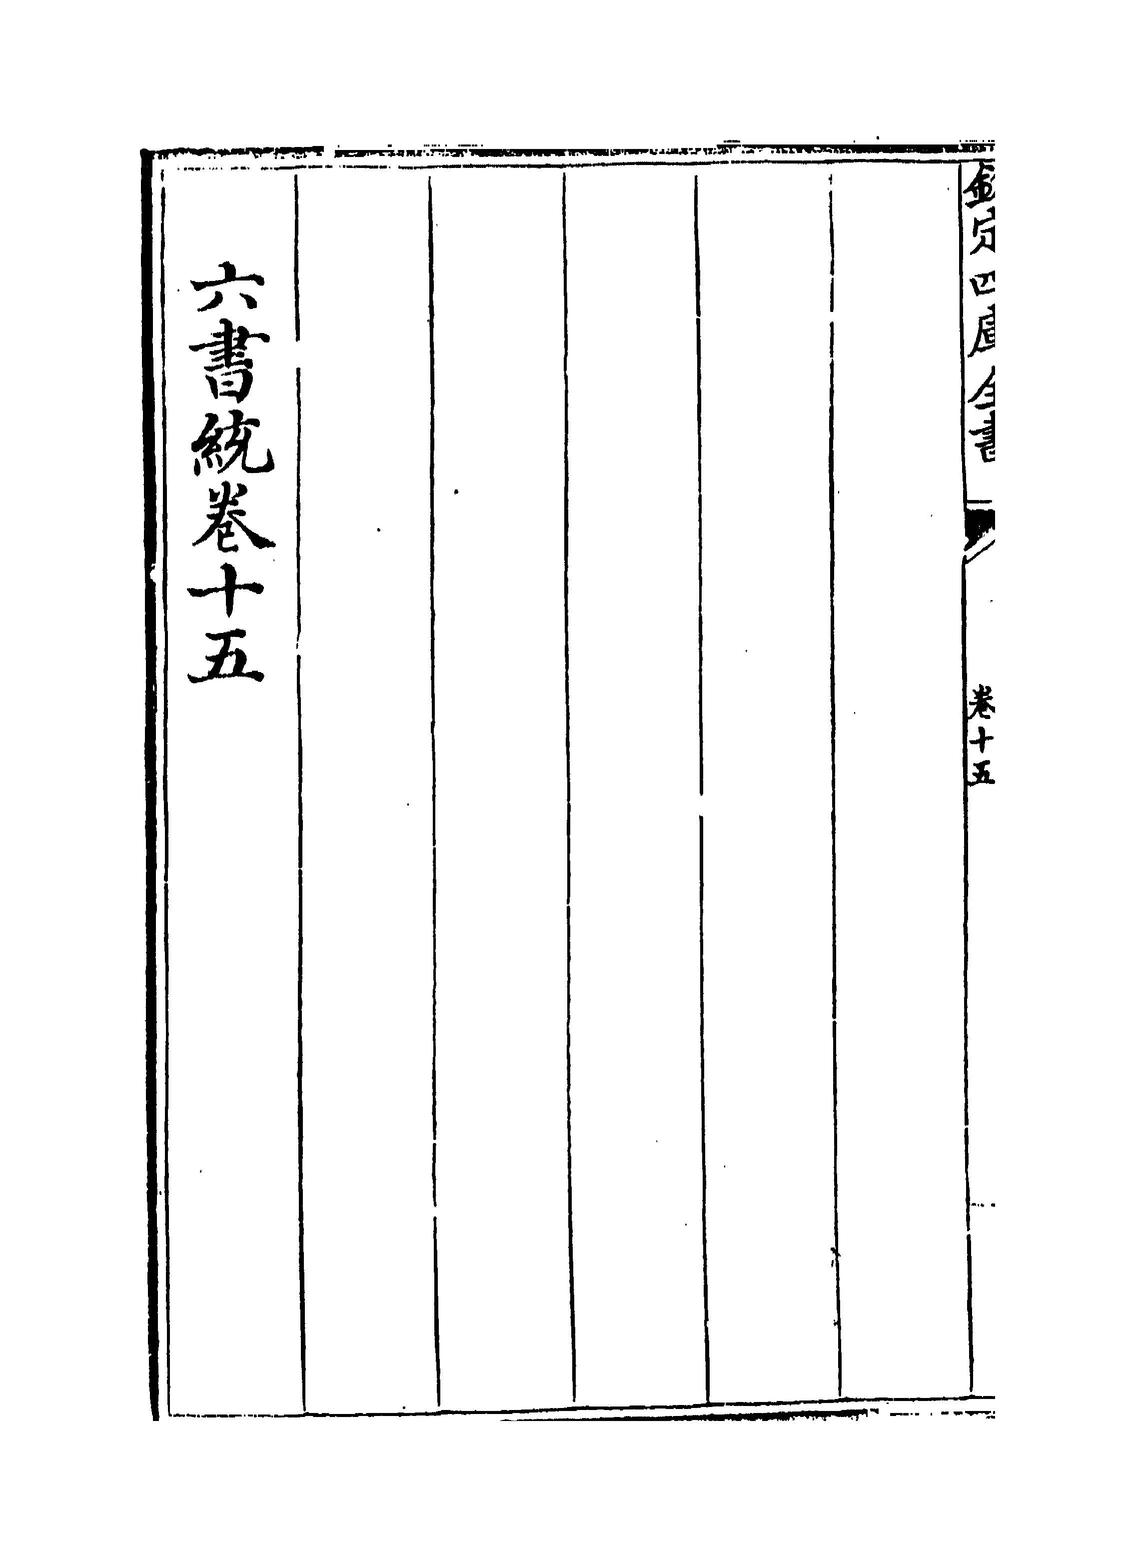 欽定四庫全書
卷十五
六書統卷十五